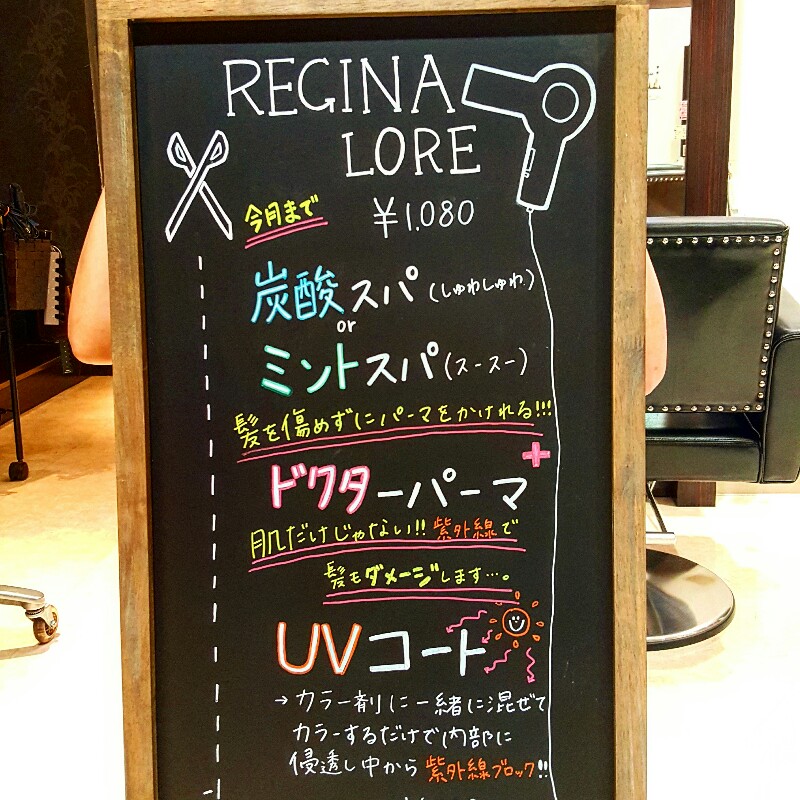 REGINA
LORE
今月まで ¥1.080
炭酸スパ(しゅわしゅわ)
or
ミントスパ(スースー)
髪を傷めずにパーマをかけれる!!!
ドクターパーマ
肌だけじゃない!! 紫外線で
髪もダメージします…。
UVコート
→カラー剤に一緒に混ぜて
カラーするだけで内部に
侵透し中から紫外線ブロック!!